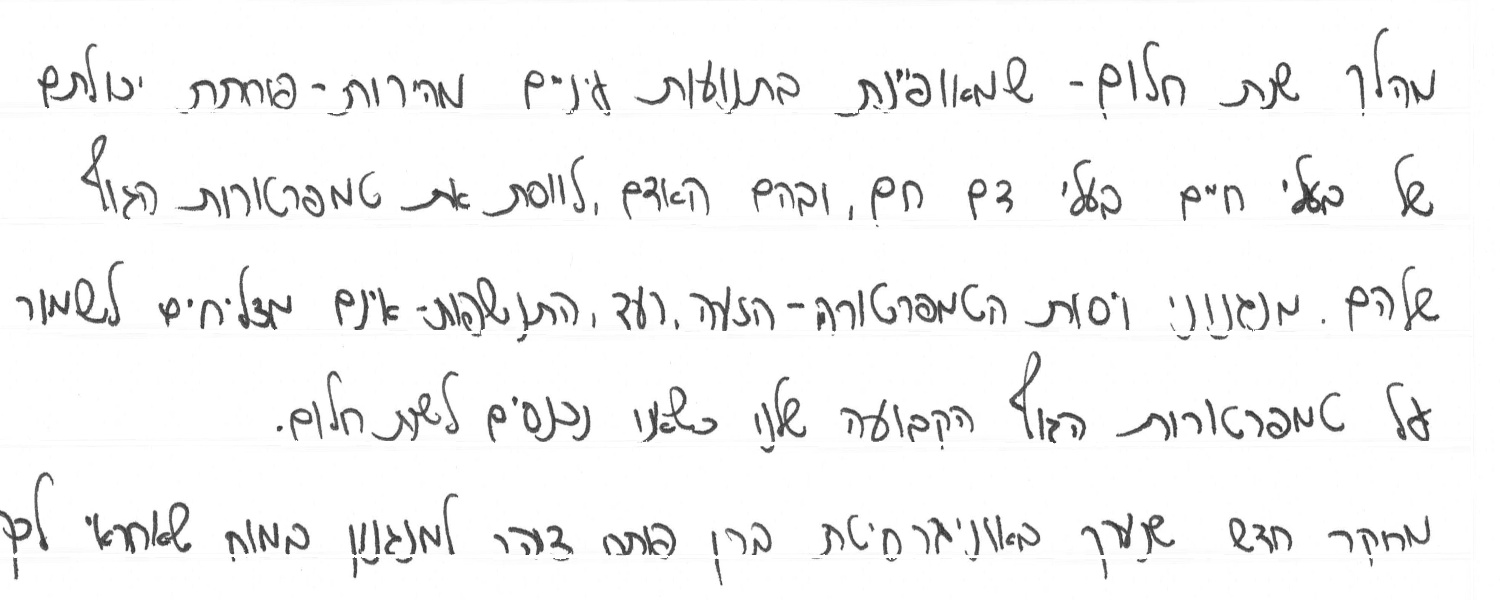 מהלך שנת חלום - שמאופיינת בתנועות עיניים מהירות - פוחתת יכולתם
של בעלי חיים בעלי דם חם, ובהם האדם, לווסת את טמפרטורות הגוף
שלהם. מנגנוני ויסות הטמפרטורה - הזעה, רעד, התנשפות - אינם מצליחים לשמור
על טמפרטורות הגוף הקבועה שלנו כשאנו נכנסים לשנת חלום.
מחקר חדש שנערך באוניברסיטת ברן פותח צוהר למנגנון במוח שאחראי לכך